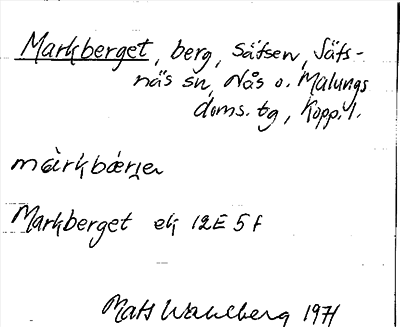 Markberget, berg, Säfsen, Säfs-
näs sn, Nås o. Malungs
doms. tg, Kopp. l.
màrkbær̯jen
Markberget ek 12E 5f
Mats Wahlberg 1971